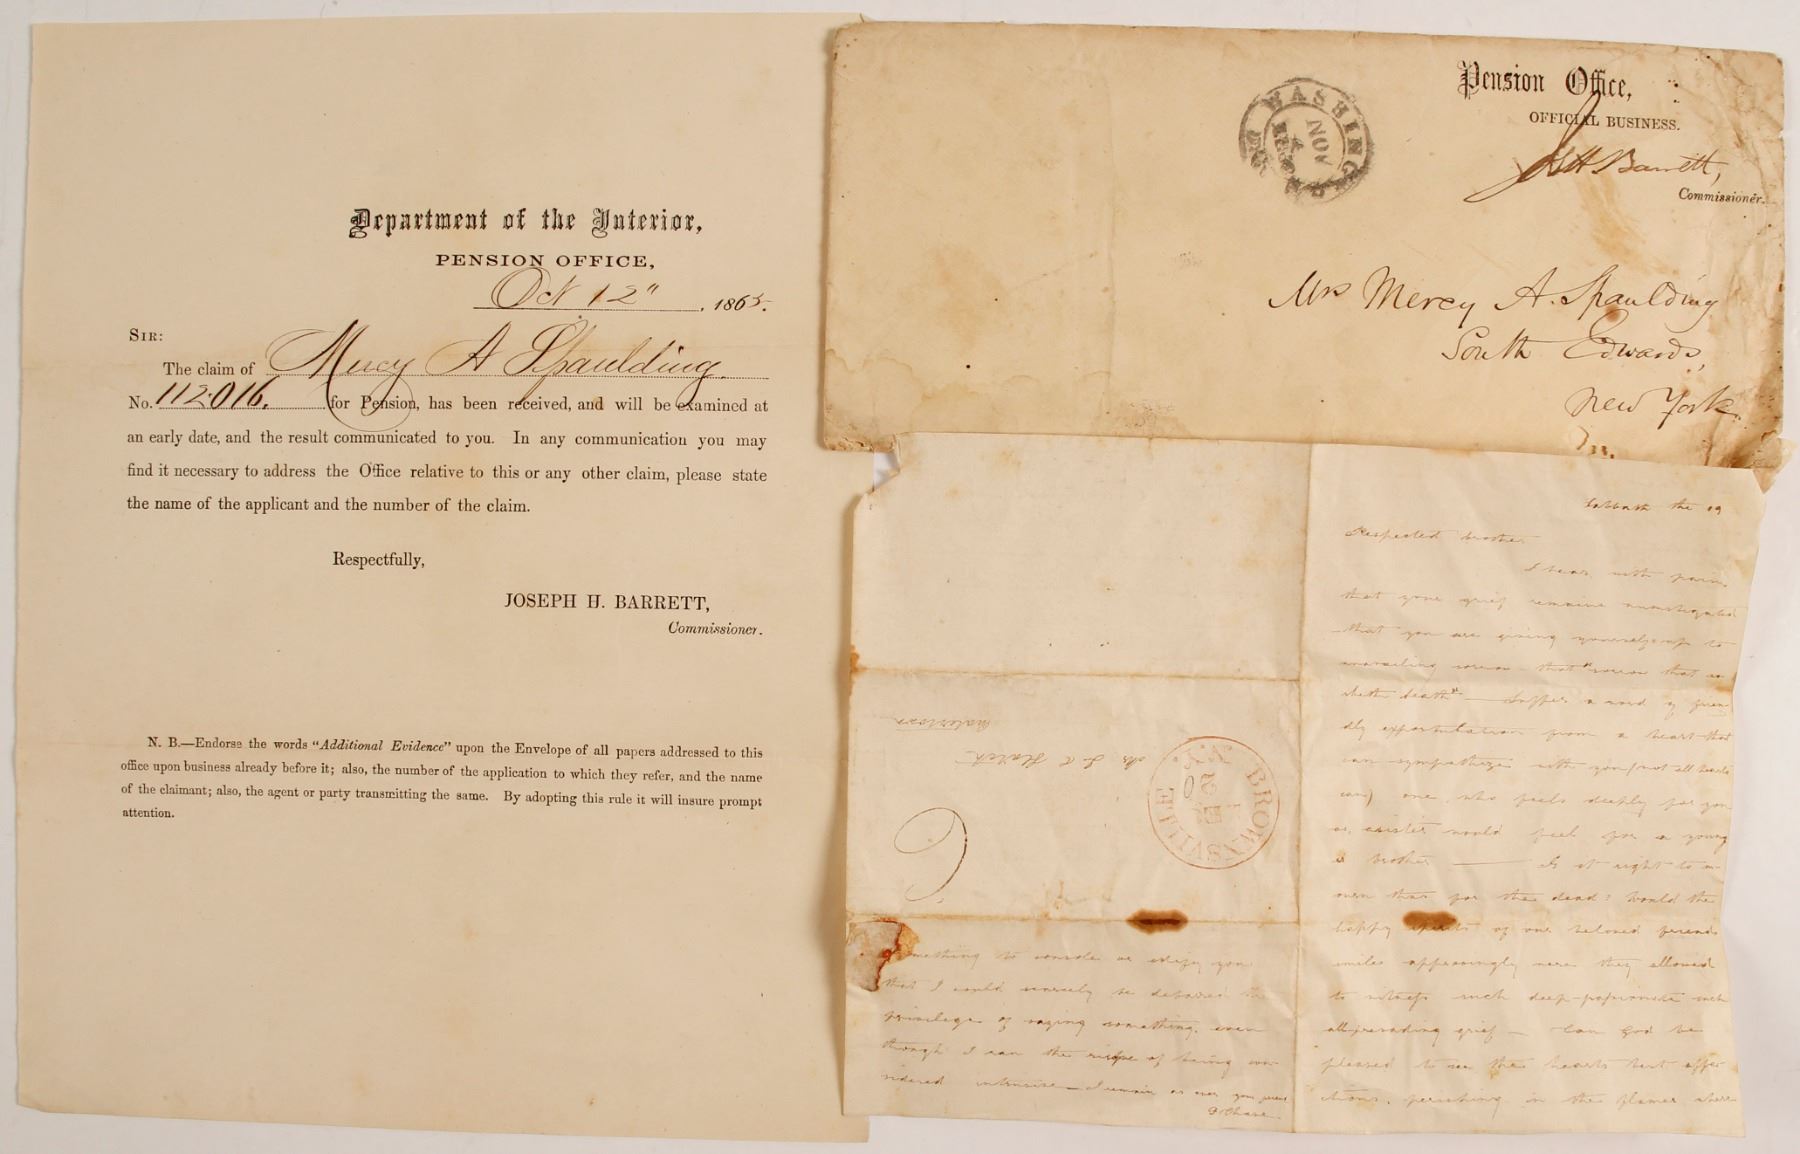 Department of the Interior,
PENSION OFFICE,
Oct 12" , 1865.
SIR:
The claim of Mercy A Spaulding
No. 112.016. for Pension, has been received, and will be examined at
an early date, and the result communicated to you. In any communication you may
find it necessary to address the Office relative to this or any other claim, please state
the name of the applicant and the number of the claim.
Respectfully,
JOSEPH H. BARRETT,
Commissioner.
N. B.—Endorse the words "Additional Evidence" upon the Envelope of all papers addressed to this
office upon business already before it; also, the number of the application to which they refer, and the name
of the claimant; also, the agent or party transmitting the same. By adopting this rule it will insure prompt
attention.
Pension Office,
OFFICIAL BUSINESS.
Barrett,
Commissioner.
WASHING
NOV
Mrs Mercy A. Spaulding
South Edwards,
New York
Sabbath the 19
Respected brother
I hear with pain
that your grief remains unmitigated
that you are giving yourself up to
sorrow that "sorrow that wo
rketh death" — Suffer a word of frien
dly expostulation from a heart that
can sympathize with you (not all hearts
can) one who feels deeply for you
as a sister would feel for a young
brother — Is it right to m
ourn thus for the dead? Would the
happy spirits of our beloved friends
smile approvingly were they allowed
to witness such deep-passionate such
all-pervading grief — Can God be
pleased to see the hearts best affec
tions, perishing in the flames where
BROWNSVILLE N.Y.
Watertown
something to console or edify you
that I could scarcely be debarred the
privilege of saying something, even
though I ran the risque of being con
sidered intrusive — I remain as ever your friend
D Chase